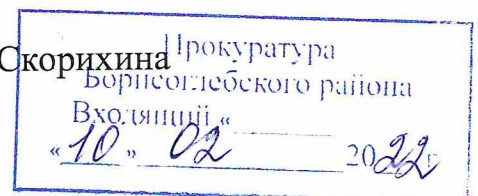 Скорихина
Прокуратура
Борисоглебского района
Входящий «
«10» 02 2022г.